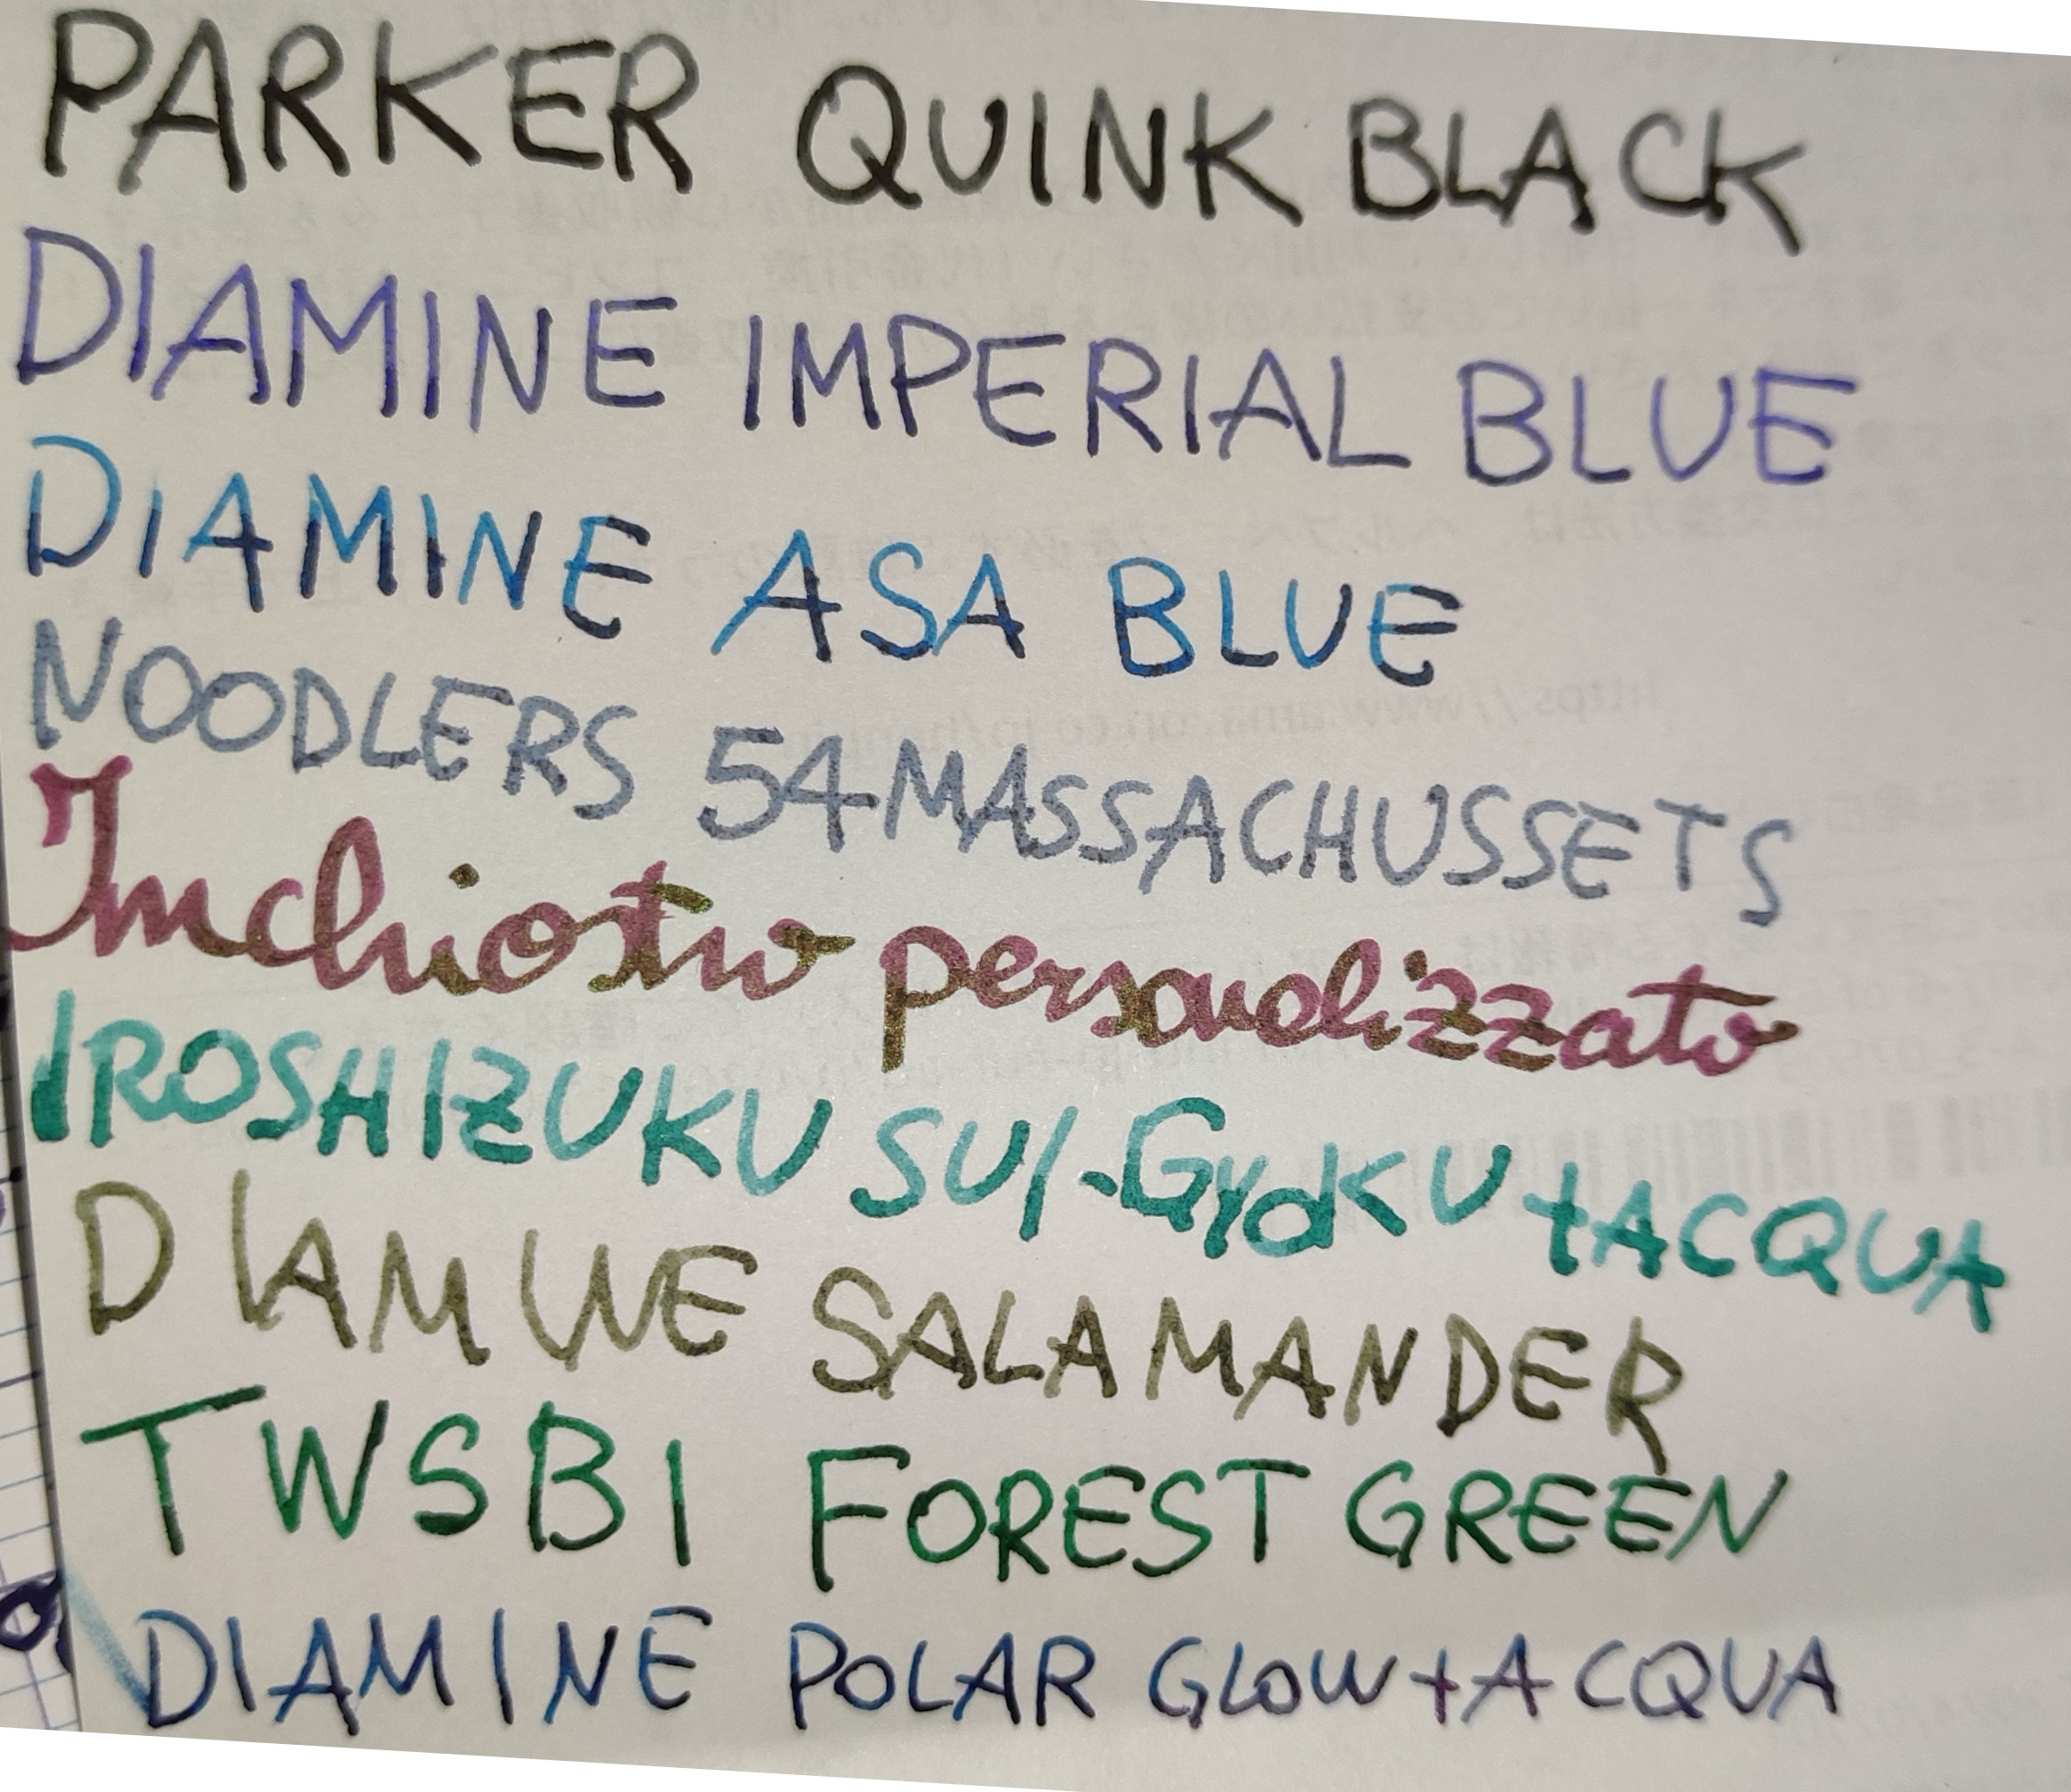 PARKER QUINK BLACK
DIAMINE IMPERIAL BLUE
DIAMINE ASA BLUE
NOODLERS 54 MASSACHUSSETS
Inchiostro personalizzato
IROSHIZUKU SUI-GYOKU + ACQUA
DIAMINE SALAMANDER
TWSBI FOREST GREEN
DIAMINE POLAR GLOW + ACQUA